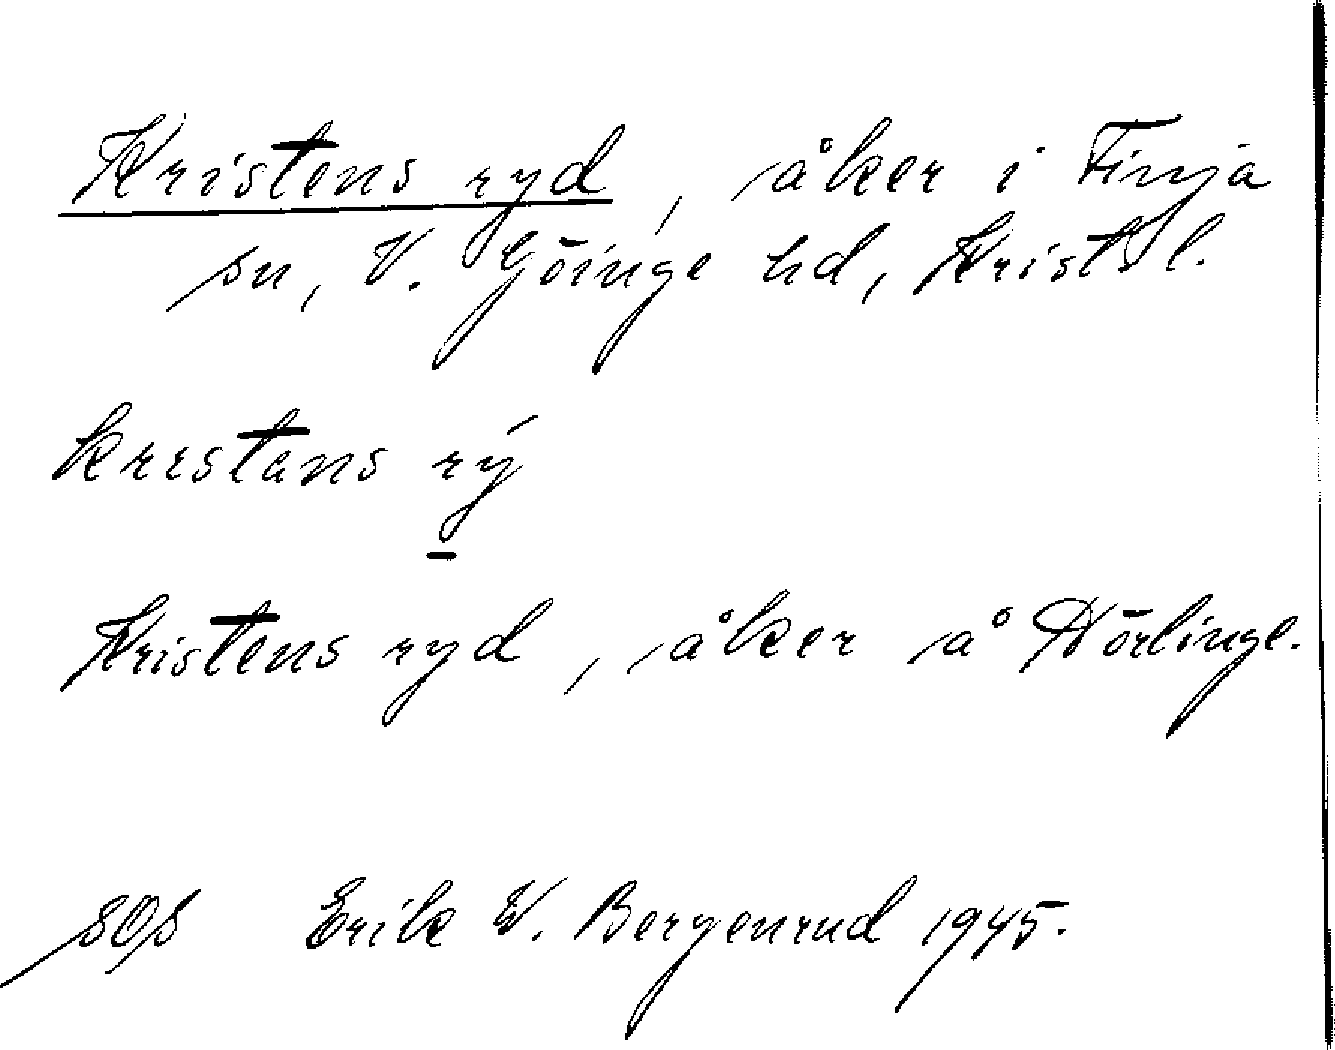 Kristens ryd, åker i Finja
sn, V. Göinge hd, Krist. l.
krestans rý
Kristens ryd, åker å Hörlinge.
Erik W. Bergenrud 1945.